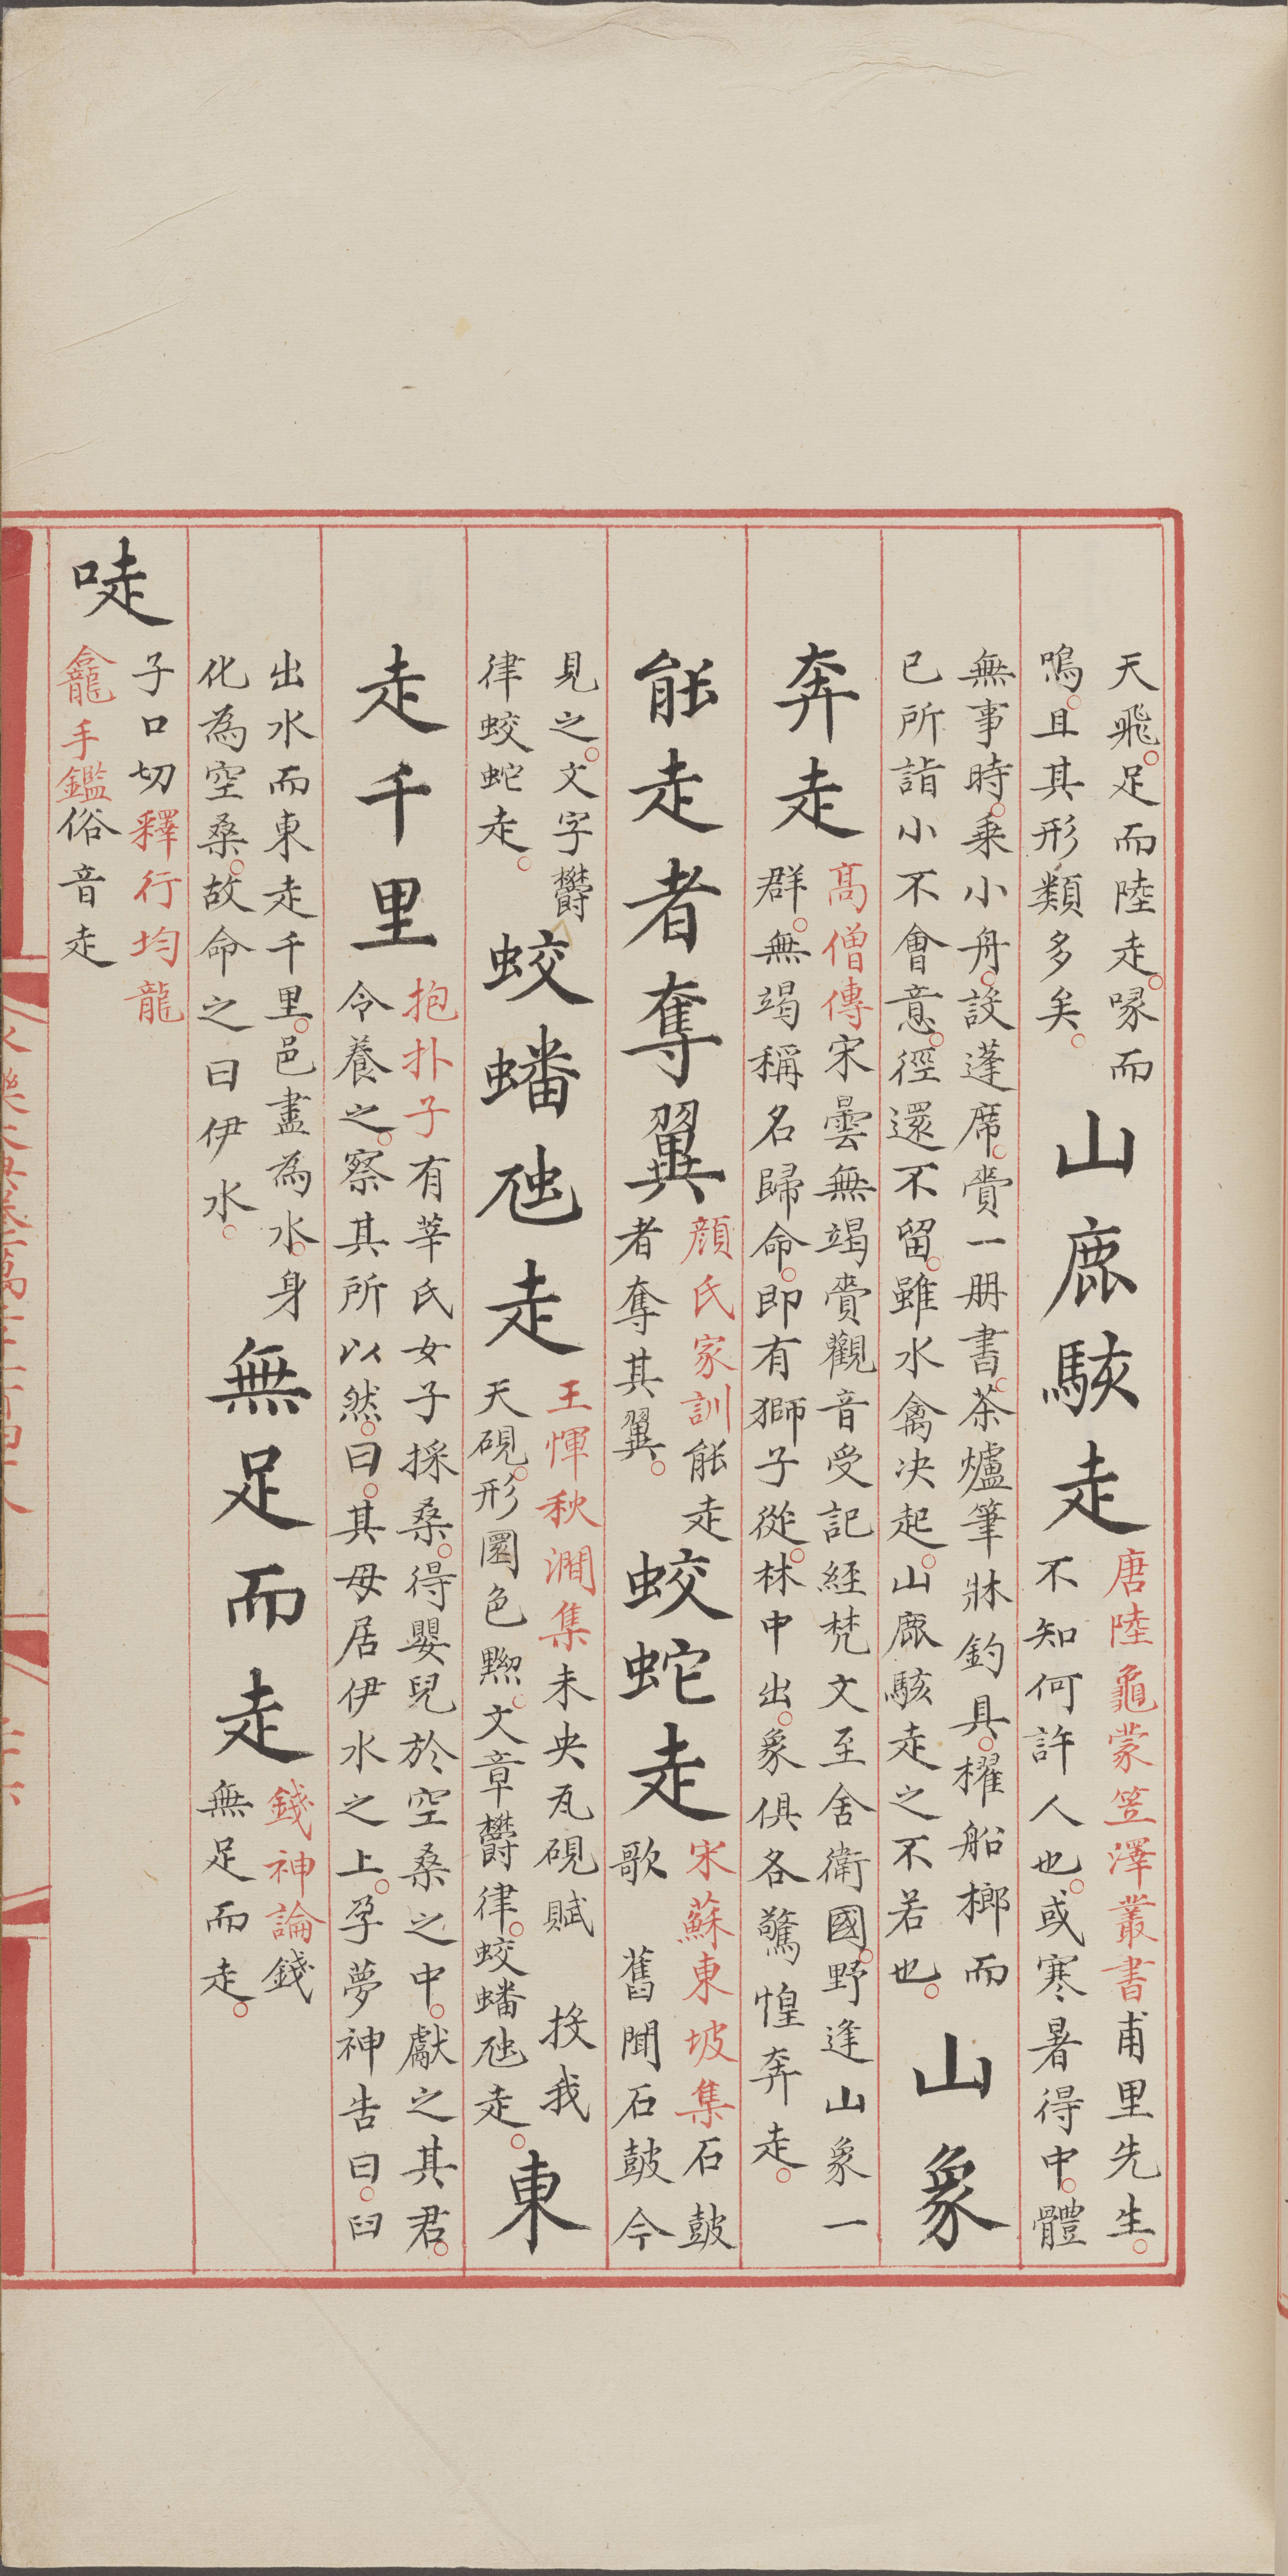 天飛。足而陸走。喙而
鳴。且其形類多矣。
山鹿駭走
唐陸龜蒙笠澤叢書甫里先生。
不知何許人也。或寒暑得中。體
無事時。乗小舟。設蓬席。賫一册書。茶爐筆牀釣具。櫂船榔而
已所詣小不會意。徑還不留。雖水禽决起。山鹿駭走之不若也。
山象
奔走
高僧傳宋曇無竭賫觀音受記經梵文至舍衛國。野逢山象一
群。無竭稱名歸命。即有獅子從。林中出。象俱各驚惶奔走。
能走者奪翼
顔氏家訓能走
者奪其翼。
蛟蛇走
宋蘇東坡集石鼓
歌 舊聞石鼓今
見之。文字欝
律蛟蛇走。
蛟蟠虵走
王惲秋澗集未央瓦硯賦 投我
天硯。形圜色黝。文章欝律。蛟蟠虵走。
東
走千里
抱扑子有莘氏女子採桑。得嬰兒於空桑之中。獻之其君。
令養之。察其所以然。曰。其母居伊水之上。孕夢神告曰。臼
出水而東走千里。邑盡為水。身
化為空桑。故命之曰伊水。
無足而走
錢神論錢
無足而走。
唗
子口切釋行均龍
龕手鑑俗音走